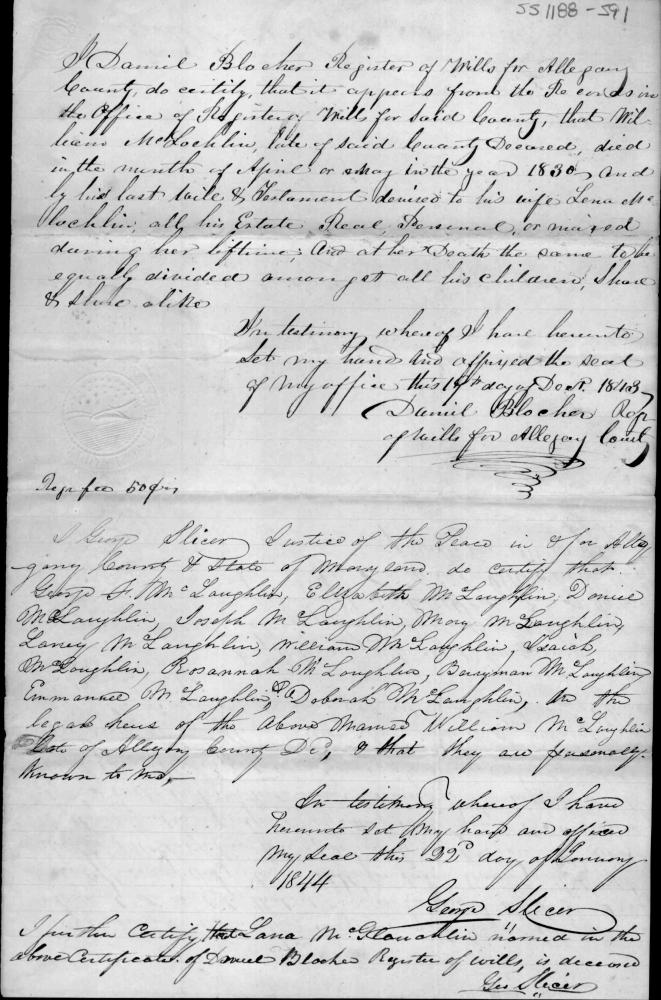 SS 1188-591
I Daniel Blocher Register of Wills for Allegany
County, do certify, that it appears from the Records in
the Office of Register of Will for Said County, that Wil-
liam McLochlin, late of said County Deceased, died
in the month of April or May in the year 1830, and
by his last will & Testament devised to his wife Lena Mc
lochlin, all his Estate Real, Personal, or mixed
during her liftime; And at her Death the same to be
equally divided amongst all his children, Share
& Share alike
In testimony whereof I have hereunto
Set my hand and affixed the seal
of my office this 19th day of Decr. 1843
Daniel Blocher Regr
of Wills for Allegany County
Regr fee 50 cts
I George Slicer Justice of the Peace in & for Alle
gany County & State of Maryland do certify that
George F. McLaughlin, Elizabeth McLaughlin, Daniel
McLaughlin, Joseph McLaughlin, Mary McLaughlin,
Laney McLaughlin, William McLaughlin, Isaiah,
McLoughlin, Rosannah McLoughlin, Baryman McLaughlin
Emmanuel McLaughlin, & Deborah McLaughlin, are the
legal heirs of the above named William McLoughlin
Late of Allegany County Dc, & that they are personally
known to me,
In testimony whereof I have
hereunto set my hand and affixed
my seal this 22d day of January
1844
George Slicer
I further Certify that Lana McGlaughlin named in the
above Certificate of Daniel Blocher Register of wills, is deceased
Geo Slicer